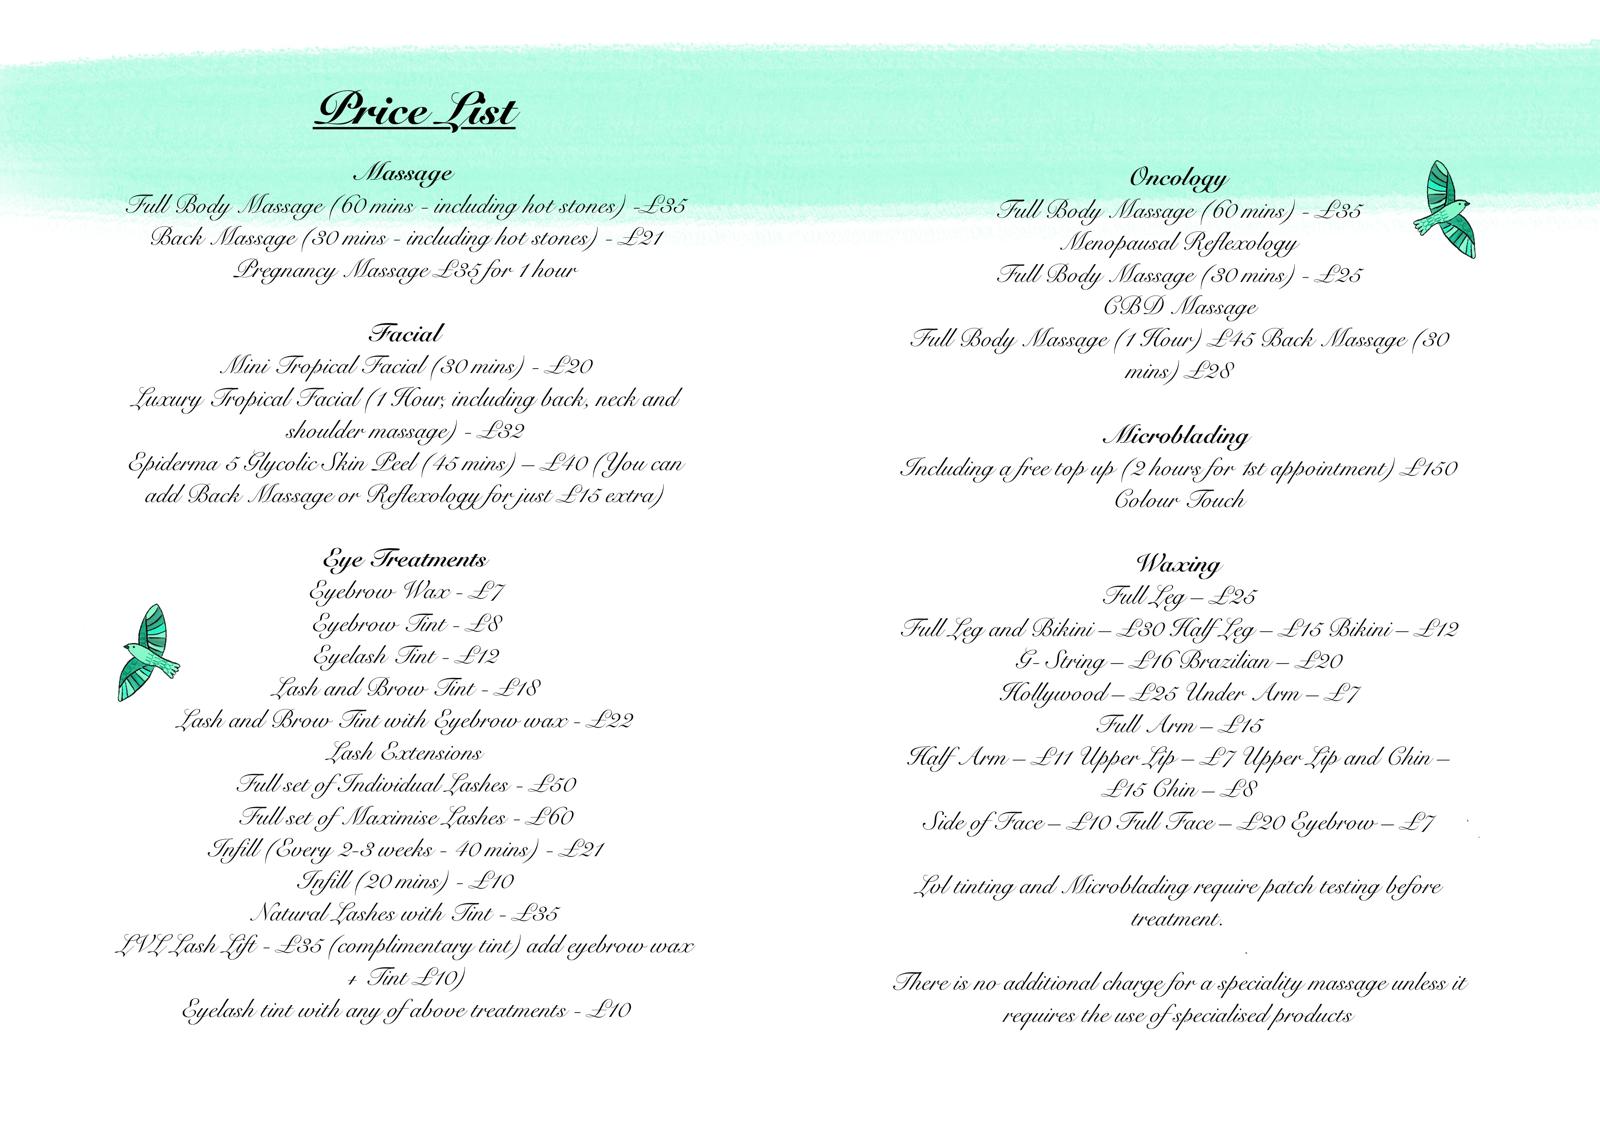 Price List
Massage
Full Body Massage (60 mins - including hot stones) -£35
Back Massage (30 mins - including hot stones) - £21
Pregnancy Massage £35 for 1 hour
Facial
Mini Tropical Facial (30 mins) - £20
Luxury Tropical Facial (1 Hour, including back, neck and
shoulder massage) - £32
Epiderma 5 Glycolic Skin Peel (45 mins) – £40 (You can
add Back Massage or Reflexology for just £15 extra)
Eye Treatments
Eyebrow Wax - £7
Eyebrow Tint - £8
Eyelash Tint - £12
Lash and Brow Tint - £18
Lash and Brow Tint with Eyebrow wax - £22
Lash Extensions
Full set of Individual Lashes - £50
Full set of Maximise Lashes - £60
Infill (Every 2-3 weeks - 40 mins) - £21
Infill (20 mins) - £10
Natural Lashes with Tint - £35
LVL Lash Lift - £35 (complimentary tint) add eyebrow wax
+ Tint £10)
Eyelash tint with any of above treatments - £10
Oncology
Full Body Massage (60 mins) - £35
Menopausal Reflexology
Full Body Massage (30 mins) - £25
CBD Massage
Full Body Massage (1 Hour) £45 Back Massage (30
mins) £28
Microblading
Including a free top up (2 hours for 1st appointment) £150
Colour Touch
Waxing
Full Leg – £25
Full Leg and Bikini – £30 Half Leg – £15 Bikini – £12
G- String – £16 Brazilian – £20
Hollywood – £25 Under Arm – £7
Full Arm – £15
Half Arm – £11 Upper Lip – £7 Upper Lip and Chin –
£15 Chin – £8
Side of Face – £10 Full Face – £20 Eyebrow – £7
Lvl tinting and Microblading require patch testing before
treatment.
There is no additional charge for a speciality massage unless it
requires the use of specialised products